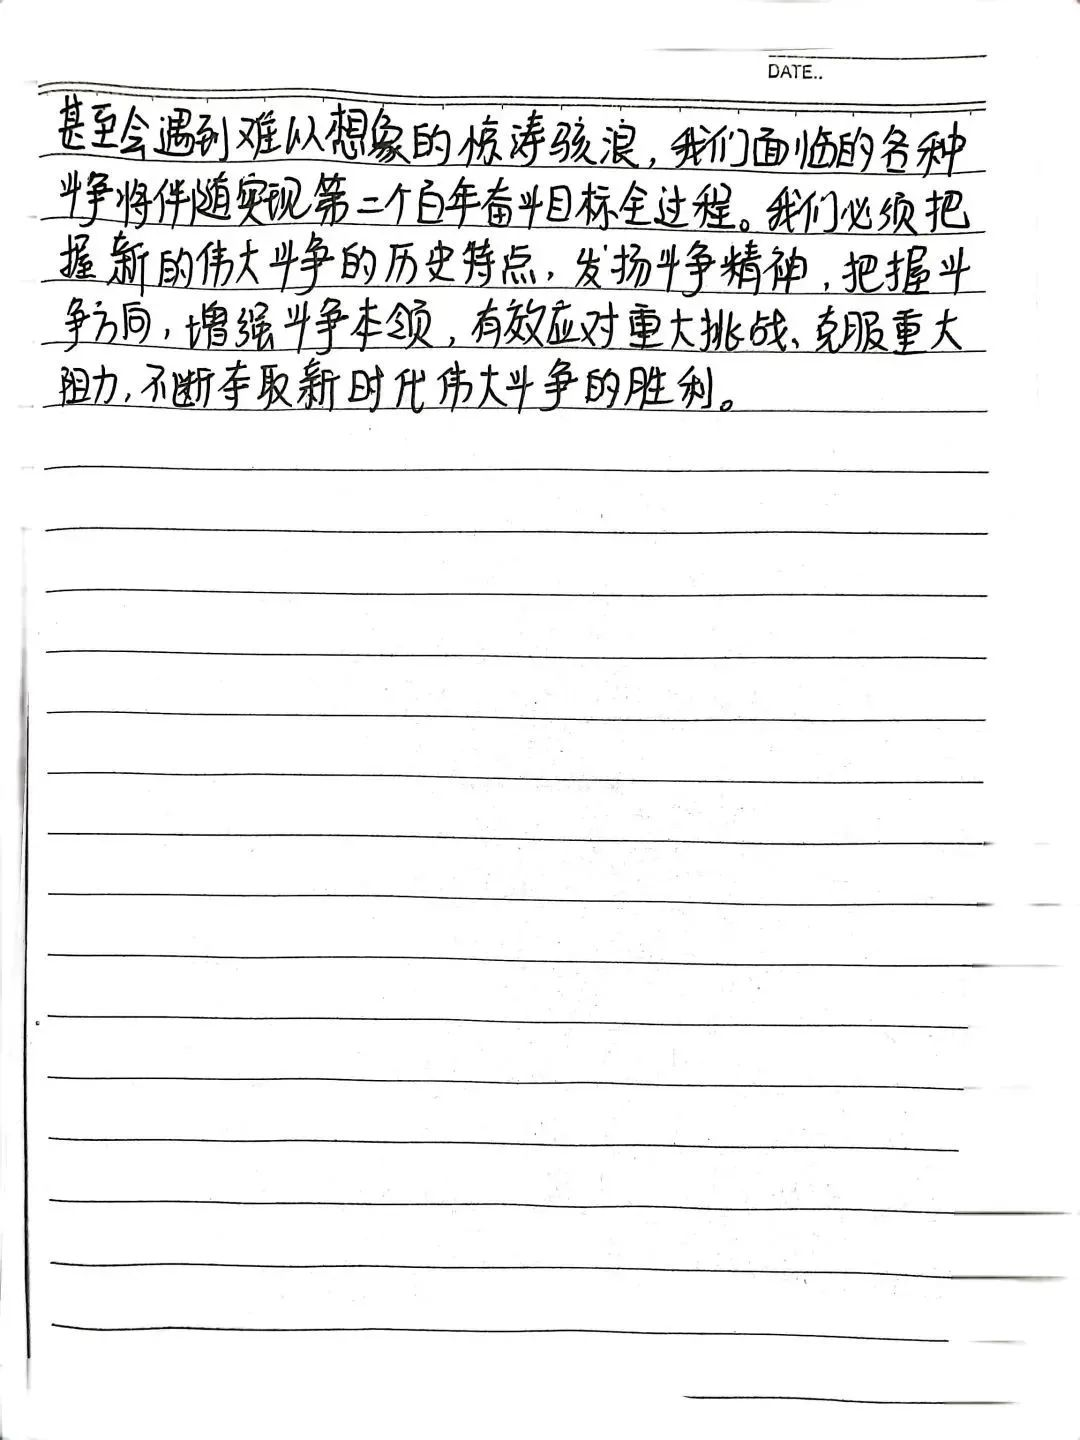 DATE..
甚至会遇到难以想象的惊涛骇浪，我们面临的各种
斗争将伴随实现第二个百年奋斗目标全过程。我们必须把
握新的伟大斗争的历史特点，发扬斗争精神，把握斗
争方向，增强斗争本领，有效应对重大挑战、克服重大
阻力，不断夺取新时代伟大斗争的胜利。